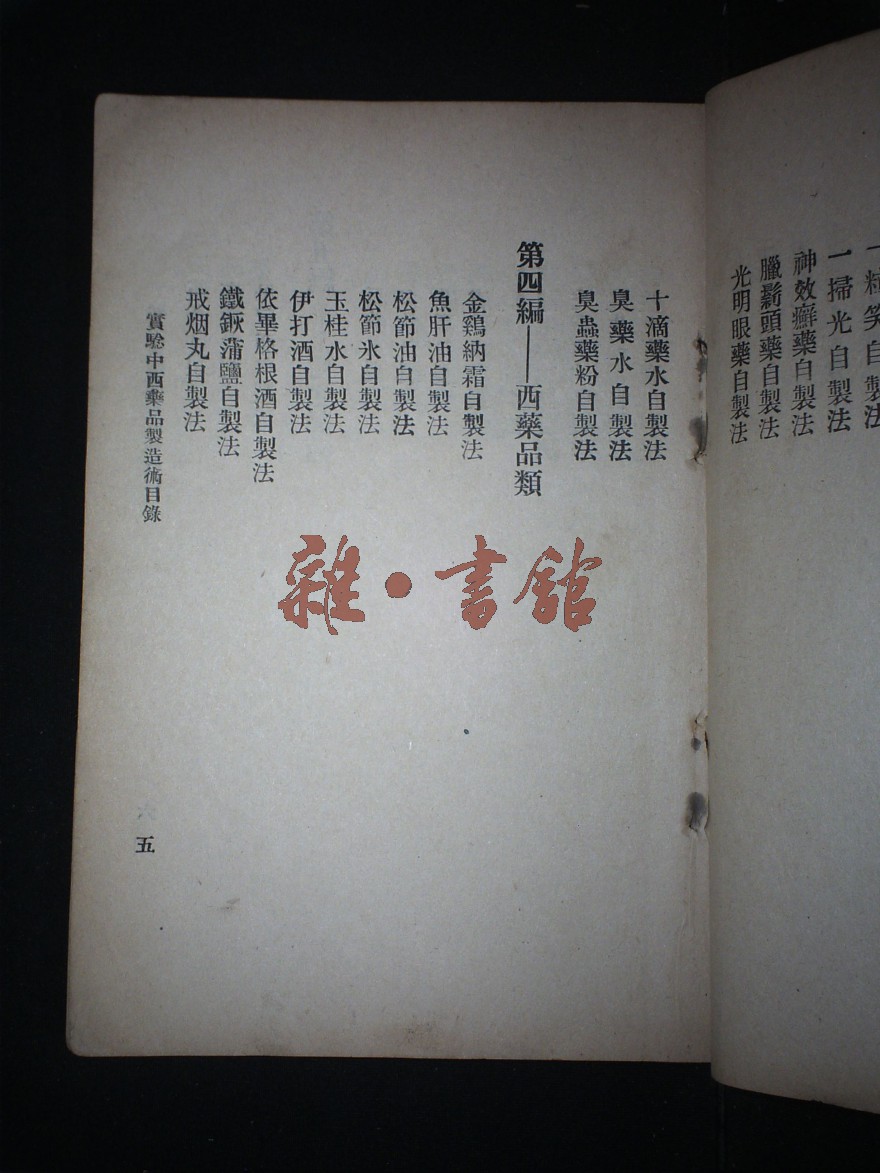 一粒笑自製法
一掃光自製法
神效癬藥自製法
臘鬁頭藥自製法
光明眼藥自製法
十滴藥水自製法
臭藥水自製法
臭蟲藥粉自製法
第四編——西藥品類
金鷄納霜自製法
魚肝油自製法
松節油自製法
松節氷自製法
玉桂水自製法
伊打酒自製法
依畢格根酒自製法
鐵鋠蒲鹽自製法
戒烟丸自製法
實驗中西藥品製造術目錄
五
雜·書館